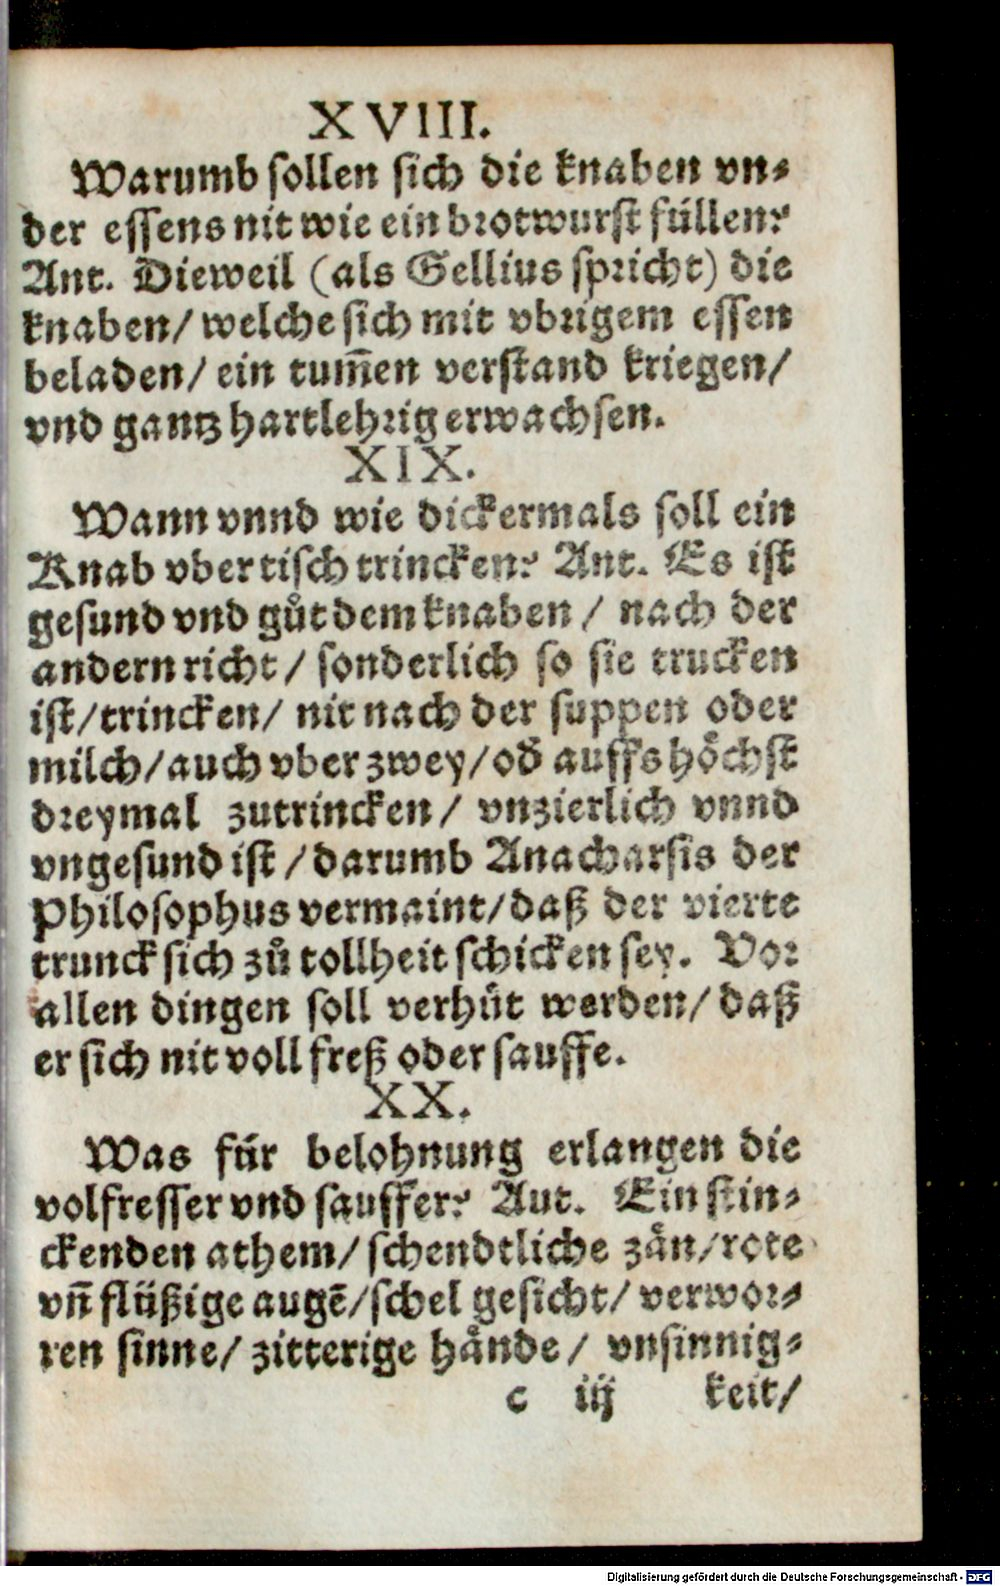 XVIII.
Warumb sollen sich die knaben vn⸗
der essens nit wie ein brotwurst füllen?
Ant. Dieweil (als Gellius spricht) die
knaben/ welche sich mit vbrigem essen
beladen/ ein tum̃en verstand kriegen/
vnd gantz hartlehrig erwachsen.
XIX.
Wann vnnd wie dickermals soll ein
Knab vber tisch trincken? Ant. Es ist
gesund vnd gůt dem knaben/ nach der
andern richt/ sonderlich so sie trucken
ist/ trincken/ nit nach der suppen oder
milch/ auch vber zwey/ od̃ auffs hoͤchst
dreymal zutrincken/ vnzierlich vnnd
vngesund ist/ darumb Anacharsis der
Philosophus vermaint/ daß der vierte
trunck sich zů tollheit schicken sey. Vor
allen dingen soll verhüt werden/ daß
er sich nit voll freß oder sauffe.
XX.
Was für belohnung erlangen die
volfresser vnd sauffer? Aut. Ein stin⸗
ckenden athem/ schendtliche zaͤn/ rote
vñ flüßige augẽ/ schel gesicht/ verwor⸗
ren sinne/ zitterige haͤnde/ vnsinnig⸗
c iij keit/
Digitalisierung gefördert durch die Deutsche Forschungsgemeinschaft - DFG